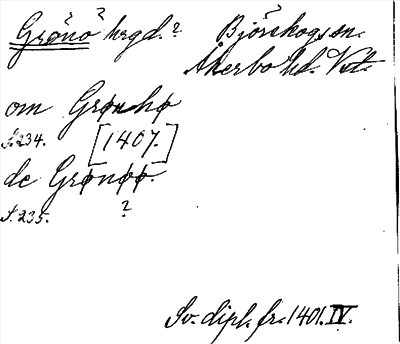 ? ?
Grønø hrgd.? Björskogs sn.
Åkerbo hd. Vstm.
om Grønhø
S. 234. [1407.]
de Grønøø.
S. 235. ?
Sv. dipl. fr. 1401. IV.